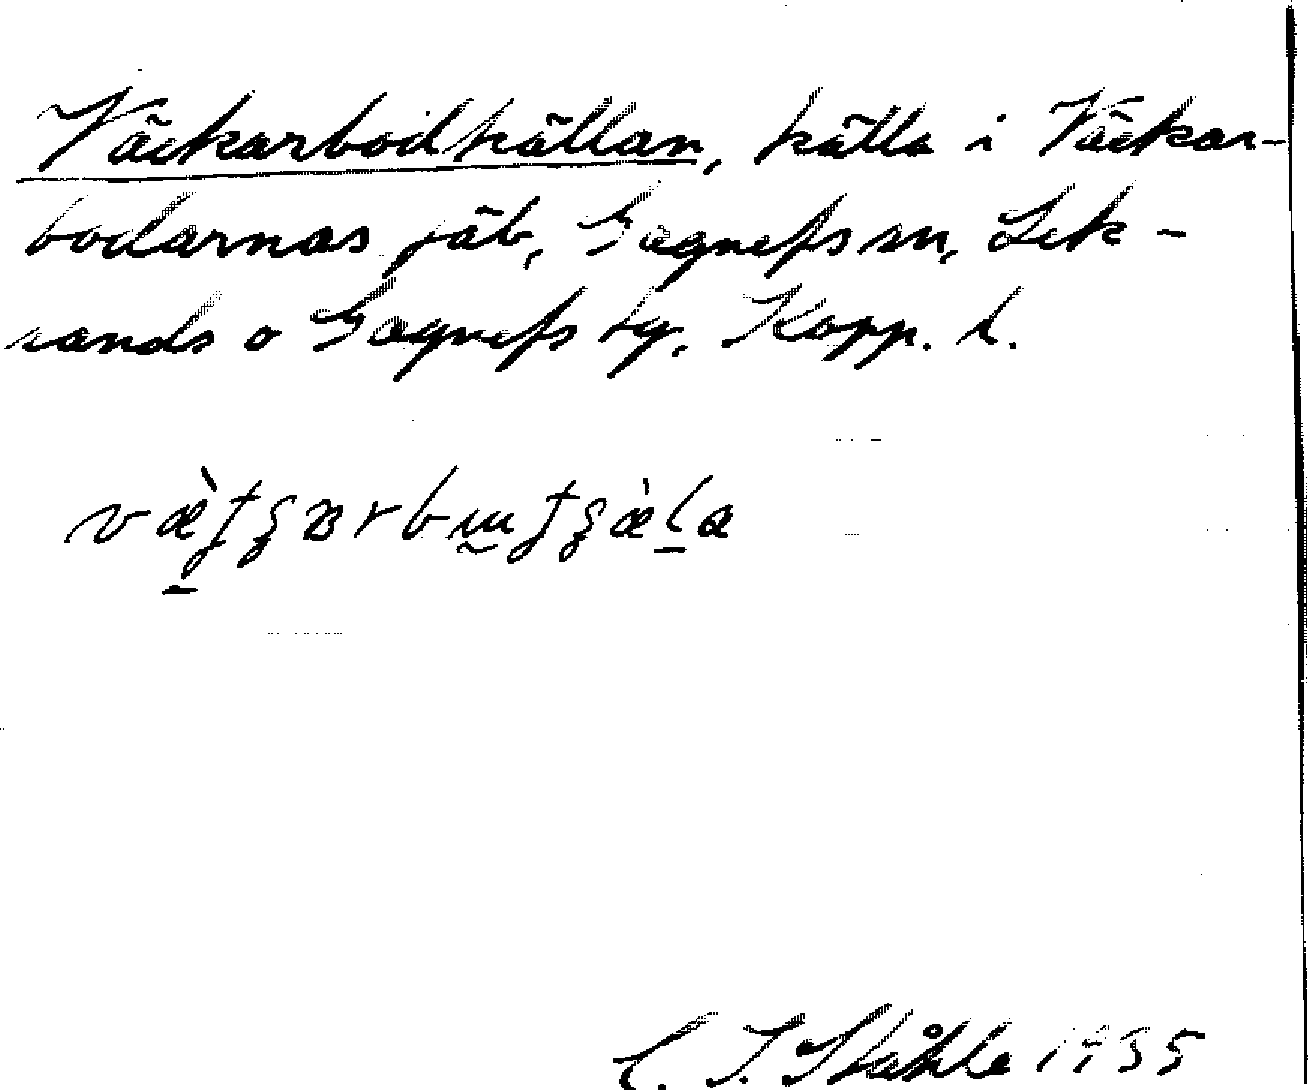 Väckarbodkällan, källa i Väckar-
bodarnas fäb, Gagnefs sn, Lek-
sands o Gagnefs tg. Kopp. l.
C. I. Ståhle 1935